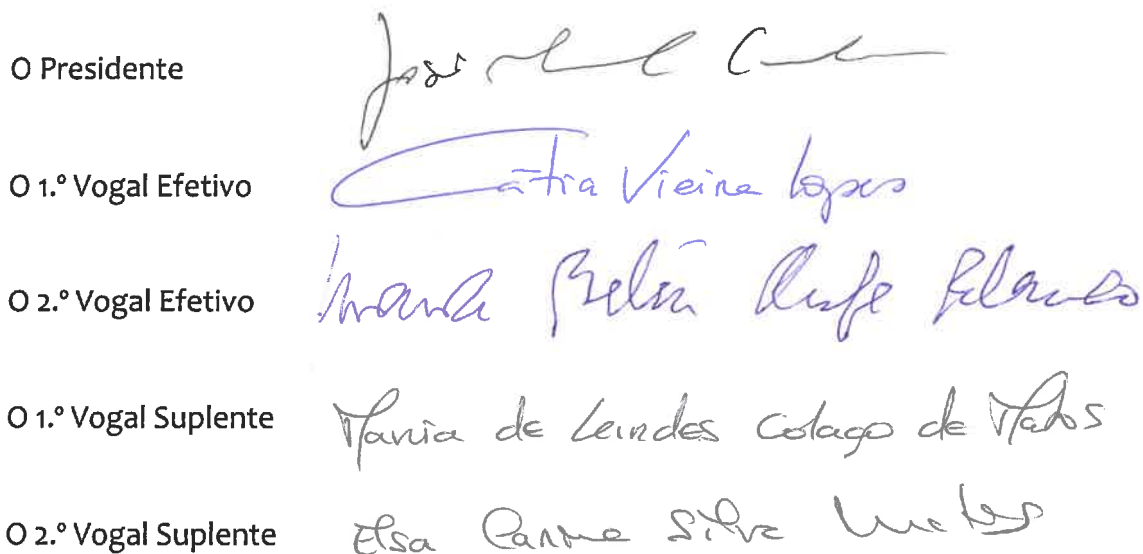 O Presidente José
O 1.º Vogal Efetivo Cátia Vieira Lopes
O 2.º Vogal Efetivo Belén
O 1.º Vogal Suplente Maria de Lurdes Colaço de Matos
O 2.º Vogal Suplente Elsa Carine Silva